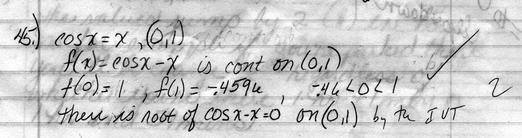 45.) cosx = x , (0,1)
f(x) = cosx-x is cont on (0,1)
f(0) = 1 , f(1) = -.459 , -.46 < 0 < 1 2
there is root of cosx-x=0 on (0,1) by the IVT